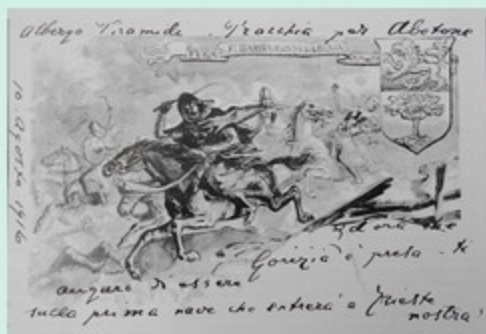 Albergo Piramidi - Pracchia per Abetone
10 Agosto 1916
ed ora che
Gorizia è presa - ti
auguro di essere
sulla prima nave che entrerà a Trieste
nostra!